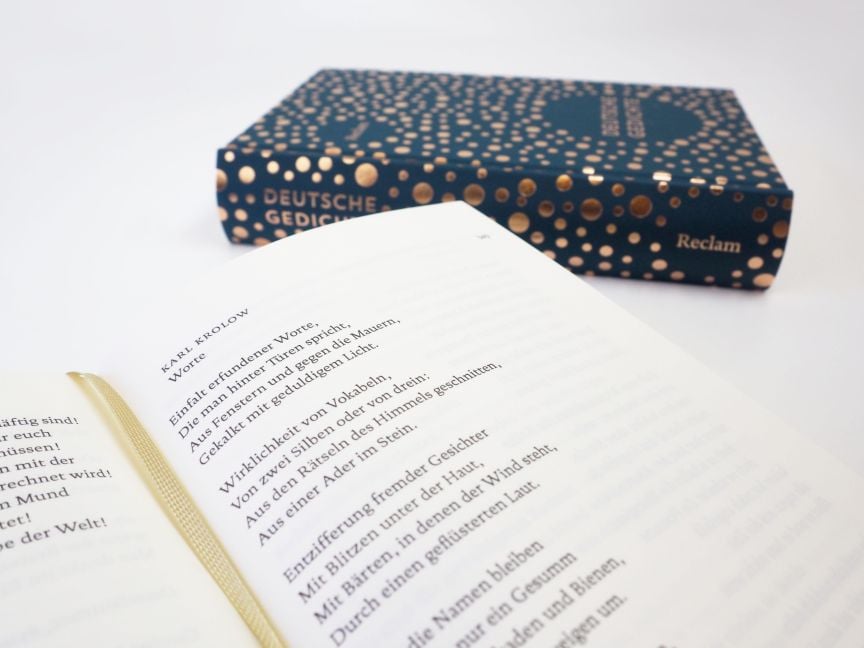 DEUTSCHE
GEDICHTE
Reclam
DEUTSCHE
Reclam
KARL KROLOW
Worte
Einfalt erfundener Worte,
Die man hinter Türen spricht,
Aus Fenstern und gegen die Mauern,
Gekalkt mit geduldigem Licht.
Wirklichkeit von Vokabeln,
Von zwei Silben oder von drein:
Aus den Rätseln des Himmels geschnitten,
Aus einer Ader im Stein.
Entzifferung fremder Gesichter
Mit Blitzen unter der Haut,
Mit Bärten, in denen der Wind steht,
Durch einen geflüsterten Laut.
die Namen bleiben
nur ein Gesumm
und Bienen,
um.
äftig sind!
euch
müssen!
mit der
rechnet wird!
Mund
tet!
der Welt!